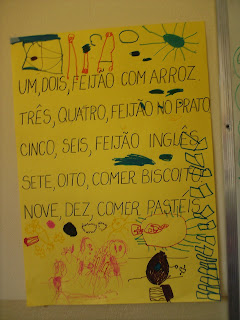 UM, DOIS, FEIJÃO COM ARROZ.
TRÊS, QUATRO, FEIJÃO NO PRATO
CINCO, SEIS, FEIJÃO INGLÊS
SETE, OITO, COMER BISCOITO
NOVE, DEZ, COMER PASTÉIS